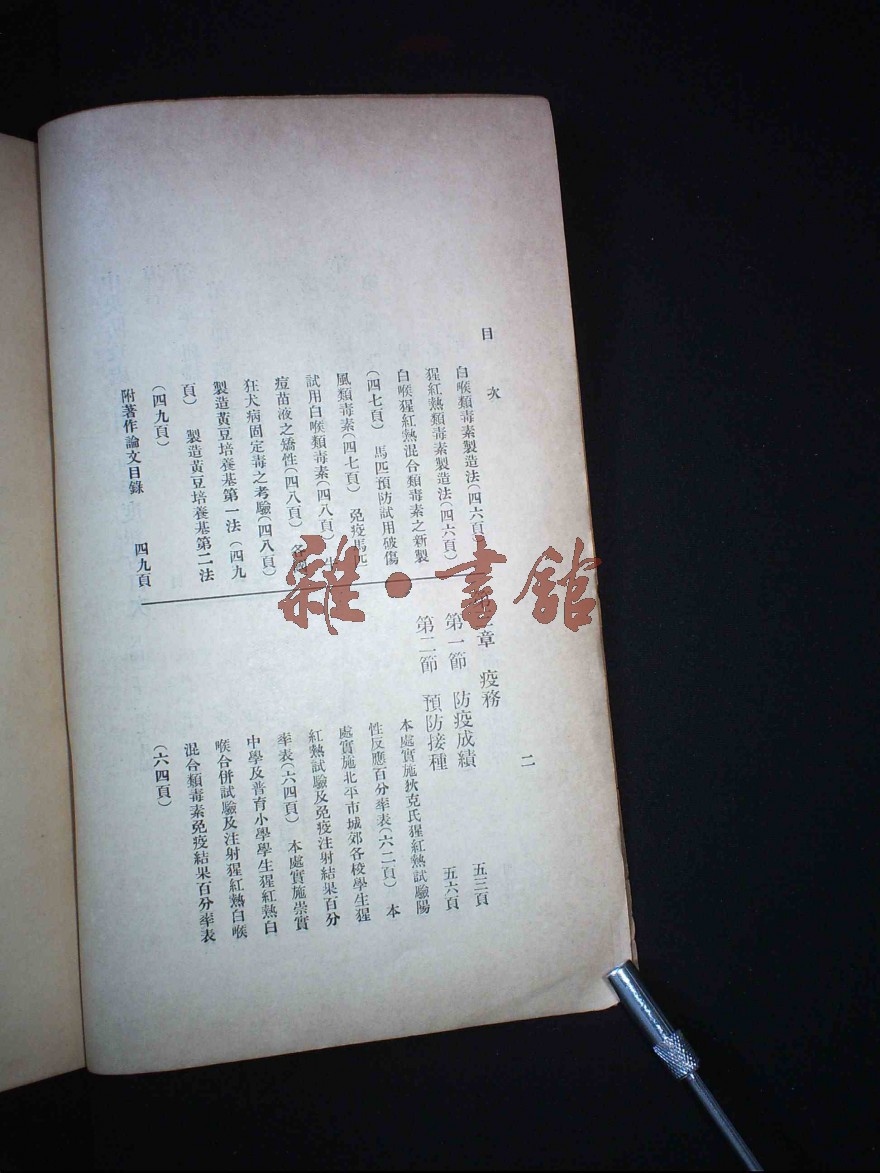 目次
白喉類毒素製造法(四六頁)
猩紅熱類毒素製造法(四六頁)
白喉猩紅熱混合類毒素之新製
(四七頁) 馬匹預防試用破傷
風類毒素(四七頁) 免疫馬匹
試用白喉類毒素(四八頁) 牛
痘苗液之矯性(四八頁) 各
狂犬病固定毒之考驗(四八頁)
製造黃豆培養基第一法(四九
頁) 製造黃豆培養基第二法
(四九頁)
附著作論文目錄 四九頁
章 疫務 五三頁
第一節 防疫成績 五六頁
第二節 預防接種
本處實施狄克氏猩紅熱試驗陽
性反應百分率表(六二頁) 本
處實施北平市城郊各校學生猩
紅熱試驗及免疫注射結果百分
率表(六四頁) 本處實施崇實
中學及普育小學學生猩紅熱白
喉合併試驗及注射猩紅熱白喉
混合類毒素免疫結果百分率表
(六四頁)
二
雜·書館